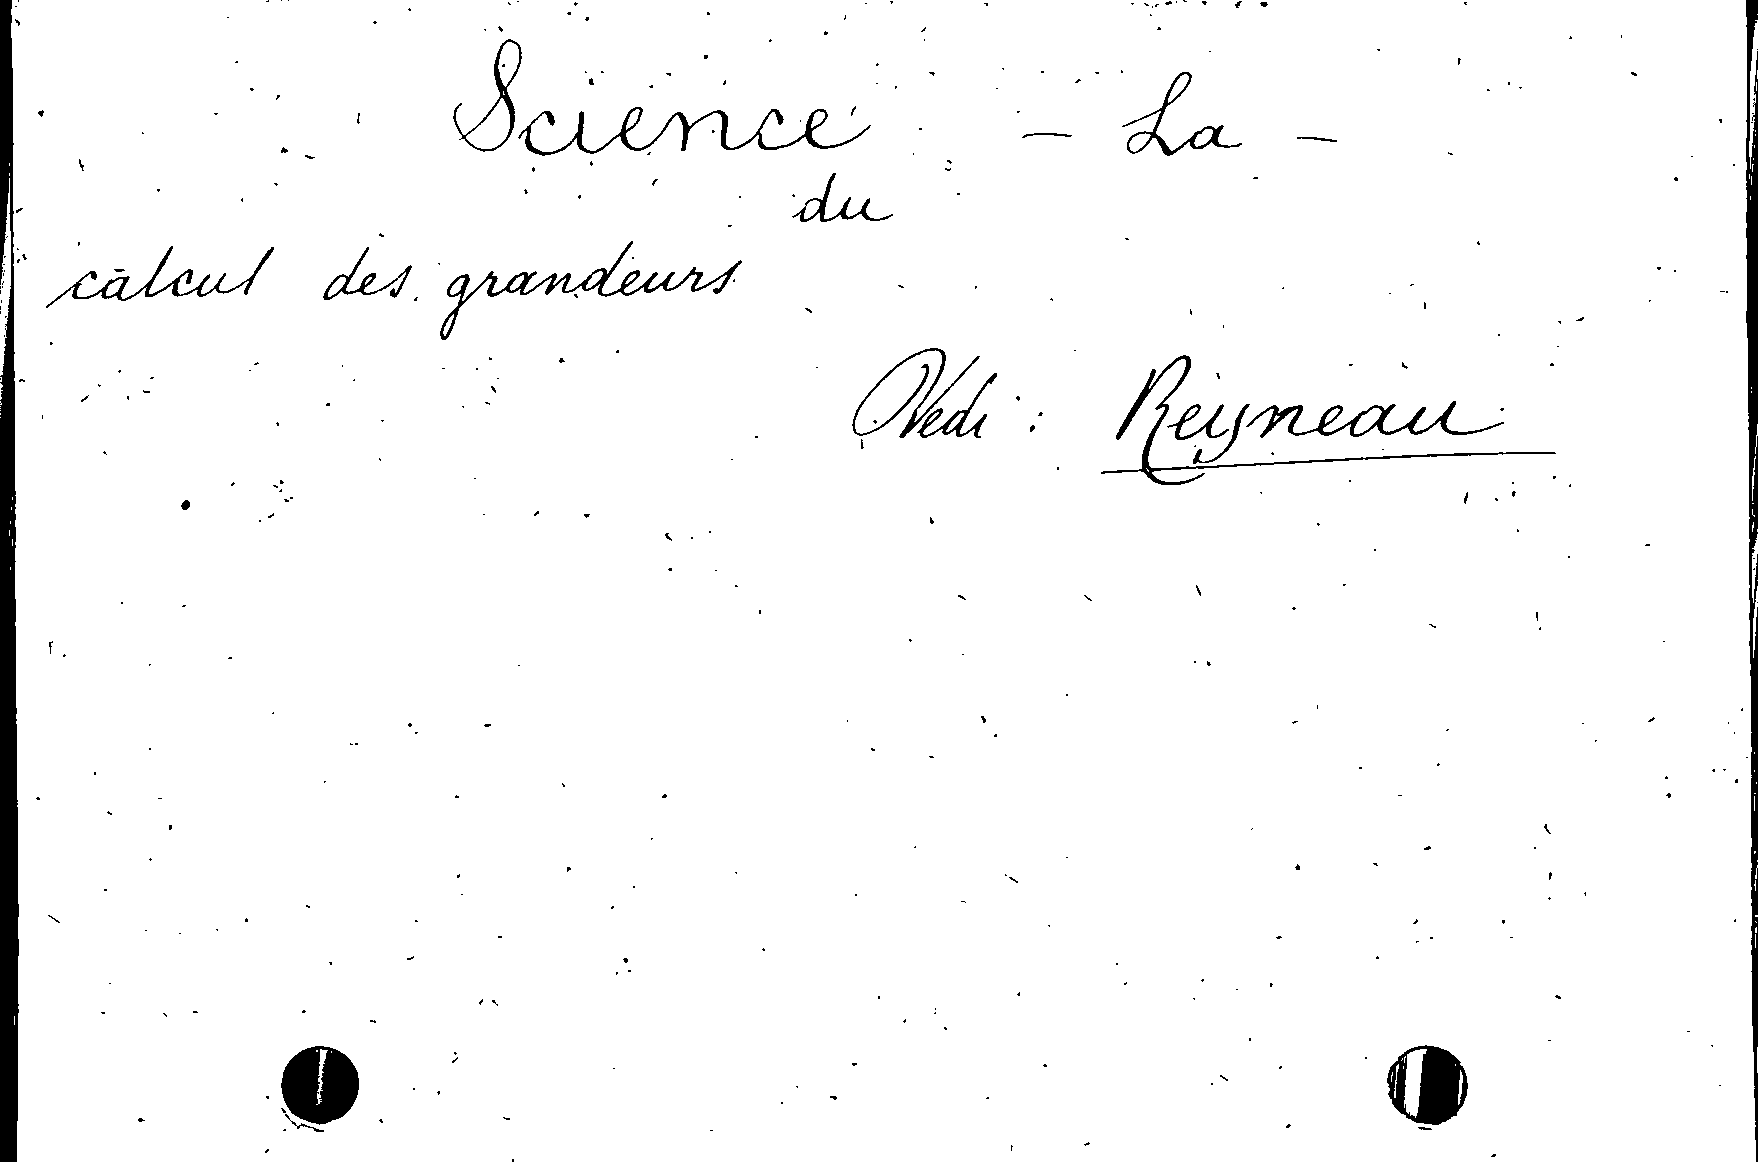 Science - La -
du
calcul des grandeurs
Vedi: Reyneau